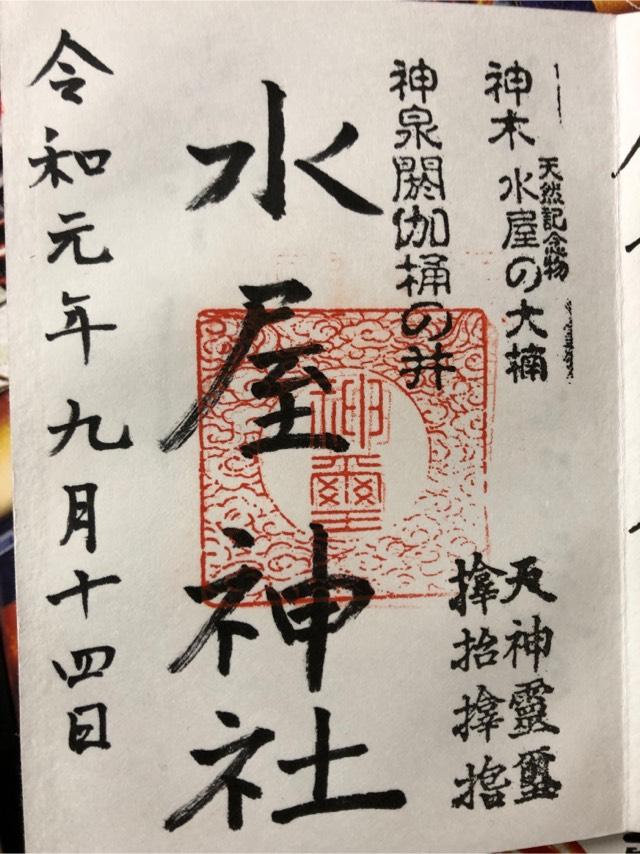 天然記念物
神木 水屋の大楠
神泉閼伽桶の井
水屋神社
神璽
令和元年九月十四日